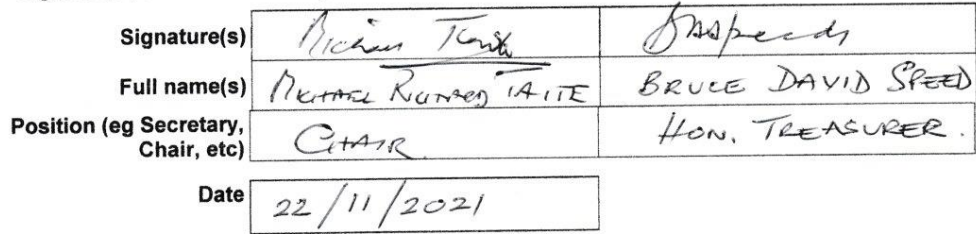 Signature(s)
Full name(s) MICHAEL RICHARD TAITE BRUCE DAVID SPEED
Position (eg Secretary, CHAIR HON. TREASURER.
Chair, etc)
Date 22/11/2021